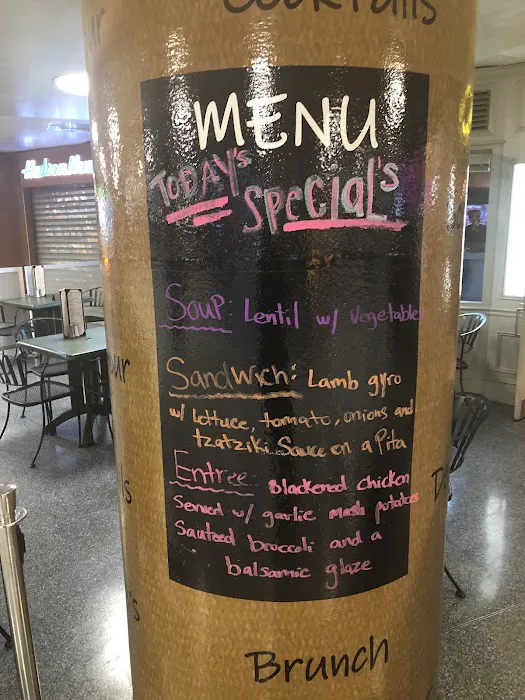 Cocktails
MENU
TODAY's
SpecIal's
Soup: Lentil w/ Vegetable
Sandwich: Lamb gyro
w/ lettuce, tomato, onions and
tzatziki Sauce on a Pita
Entree: Blackened chicken
Served w/ garlic mash potatoes
Sauteed broccoli and a
balsamic glaze
Brunch